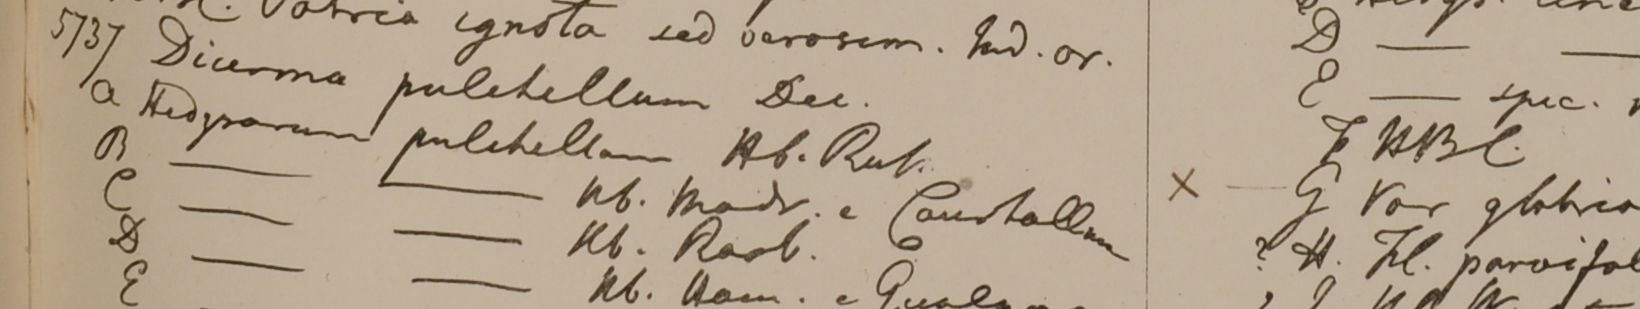 Patria ignota sed verosim. Ind. or.
5737 Dicerma pulchellum Dec.
a Hedysarum pulchellum Hb. Rub.
B — — Hb. Madr. e Courtallum
C — — Hb. Roxb.
D — — Hb. Ham. e
E
D — —
E — spec.
F HBC.
× — G Var glabrio
? H. Fl. parvifol